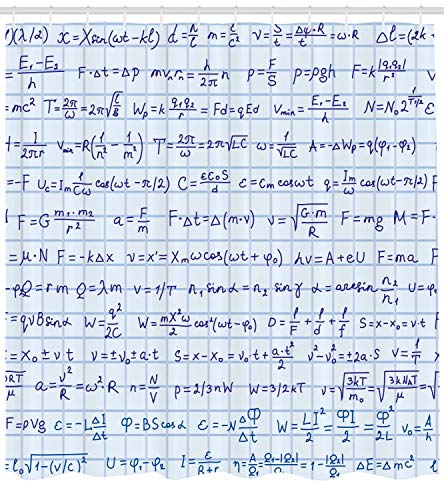 )(λ/2) x=Xsin(ωt-kl) d=N/n m=ε/c² v=S/t=Δφ·R/t=ω·R Δl=(2k
E₁-E₂/h F·Δt=Δp mvₙrₙ=h/2π n p=F/S p=ρgh F=k|q₁q₂|/r²
=mc² T=2π/ω=2π√(l/g) Wₚ=k q₁q₂/r=Fd=qEd νmin=E₁-E₂/h N=N₀2
H=I/2πr νmin=R(1/n²-1/m²) T=2π/ω=2π√LC ω=1/√LC A=-ΔWₚ=q(φ₁-φ₂)
=-F U_c=Iₘ 1/Cω cos(ωt-π/2) C=εε₀S/d ε=εₘcosωt q=Iₘ/ω cos(ωt-π/2) F
F=G m₁·m₂/r² a=F/m F·Δt=Δ(m·v) v=√(G·m/R) F=mg M=F·
=μ·N F=-kΔx v=x'=Xₘωcos(ωt+φ₀) hν=A+eU F=ma F
Q=rm Q=λm ν=1/T n₁sinα=n₂sinγ α=arcsin n₂/n₁ U=φ₁
=qvBsinα W=q²/2C W=mX²ω/2 cos²(ωt-φ₀) D=1/F=1/d+1/f S=x-x₀=v·t F
=x₀±v·t v=±v₀±a·t S=x-x₀=v₀·t+a·t²/2 v²-v₀²=±2a·S ν=1/T
3RT/μ a=v²/R=ω²·R n=N/V p=2/3nW W=3/2kT v=√(3kT/m₀)=√(3kNₐT/μ)
F=ρVg ε=-L ΔI/Δt Φ=BScosα ε=-N ΔΦ/Δt W=LI²/2=ΦI/2=Φ²/2L ν₀=A/h
=l₀√(1-(v/c)²) U=φ₁-φ₂ I=ε/R+r η=A/Q₁=Q₁-|Q₂|/Q₁=1-|Q₂|/Q₁ ΔE=Δmc²